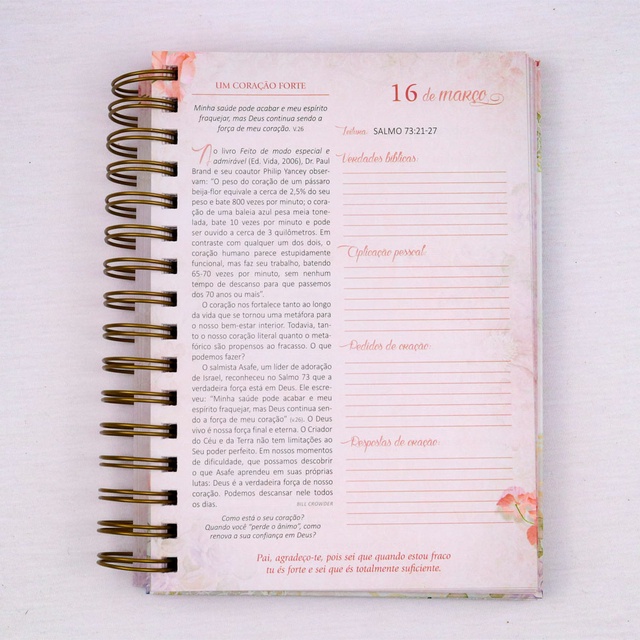 UM CORAÇÃO FORTE
Minha saúde pode acabar e meu espírito
fraquejar, mas Deus continua sendo a
força de meu coração. V.26
No livro Feito de modo especial e
admirável (Ed. Vida, 2006), Dr. Paul
Brand e seu coautor Philip Yancey obser-
vam: “O peso do coração de um pássaro
beija-flor equivale a cerca de 2,5% do seu
peso e bate 800 vezes por minuto; o cora-
ção de uma baleia azul pesa meia tone-
lada, bate 10 vezes por minuto e pode
ser ouvido a cerca de 3 quilômetros. Em
contraste com qualquer um dos dois, o
coração humano parece estupidamente
funcional, mas faz seu trabalho, batendo
65-70 vezes por minuto, sem nenhum
tempo de descanso para que passemos
dos 70 anos ou mais”.
O coração nos fortalece tanto ao longo
da vida que se tornou uma metáfora para
o nosso bem-estar interior. Todavia, tan-
to o nosso coração literal quanto o meta-
fórico são propensos ao fracasso. O que
podemos fazer?
O salmista Asafe, um líder de adoração
de Israel, reconheceu no Salmo 73 que a
verdadeira força está em Deus. Ele escre-
veu: “Minha saúde pode acabar e meu
espírito fraquejar, mas Deus continua sen-
do a força de meu coração” (v.26). O Deus
vivo é nossa força final e eterna. O Criador
do Céu e da Terra não tem limitações ao
Seu poder perfeito. Em nossos momentos
de dificuldade, que possamos descobrir
o que Asafe aprendeu em suas próprias
lutas: Deus é a verdadeira força de nosso
coração. Podemos descansar nele todos
os dias. BILL CROWDER
Como está o seu coração?
Quando você “perde o ânimo”, como
renova a sua confiança em Deus?
16 de março
Leitura: SALMO 73:21-27
Verdades bíblicas:
Aplicação pessoal:
Pedidos de oração:
Respostas de oração:
Pai, agradeço-te, pois sei que quando estou fraco
tu és forte e sei que és totalmente suficiente.